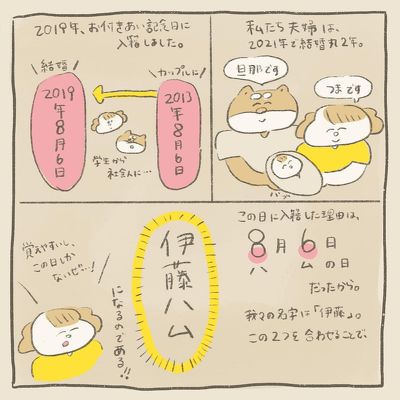 私たち夫婦は、
2021年で結婚丸2年。
旦那です
つまです
2019年、お付きあい記念日に
入籍しました。
カップルに!
2013年8月6日
結婚
2019年8月6日
学生から
社会人に…
この日に入籍した理由は、
8月6日
ハ ム の日
だったから。
我々の名字は「伊藤」。
この2つを合わせることで、
伊藤ハム
になるのである!!
覚えやすいし、
この日しか
ないぜ…!